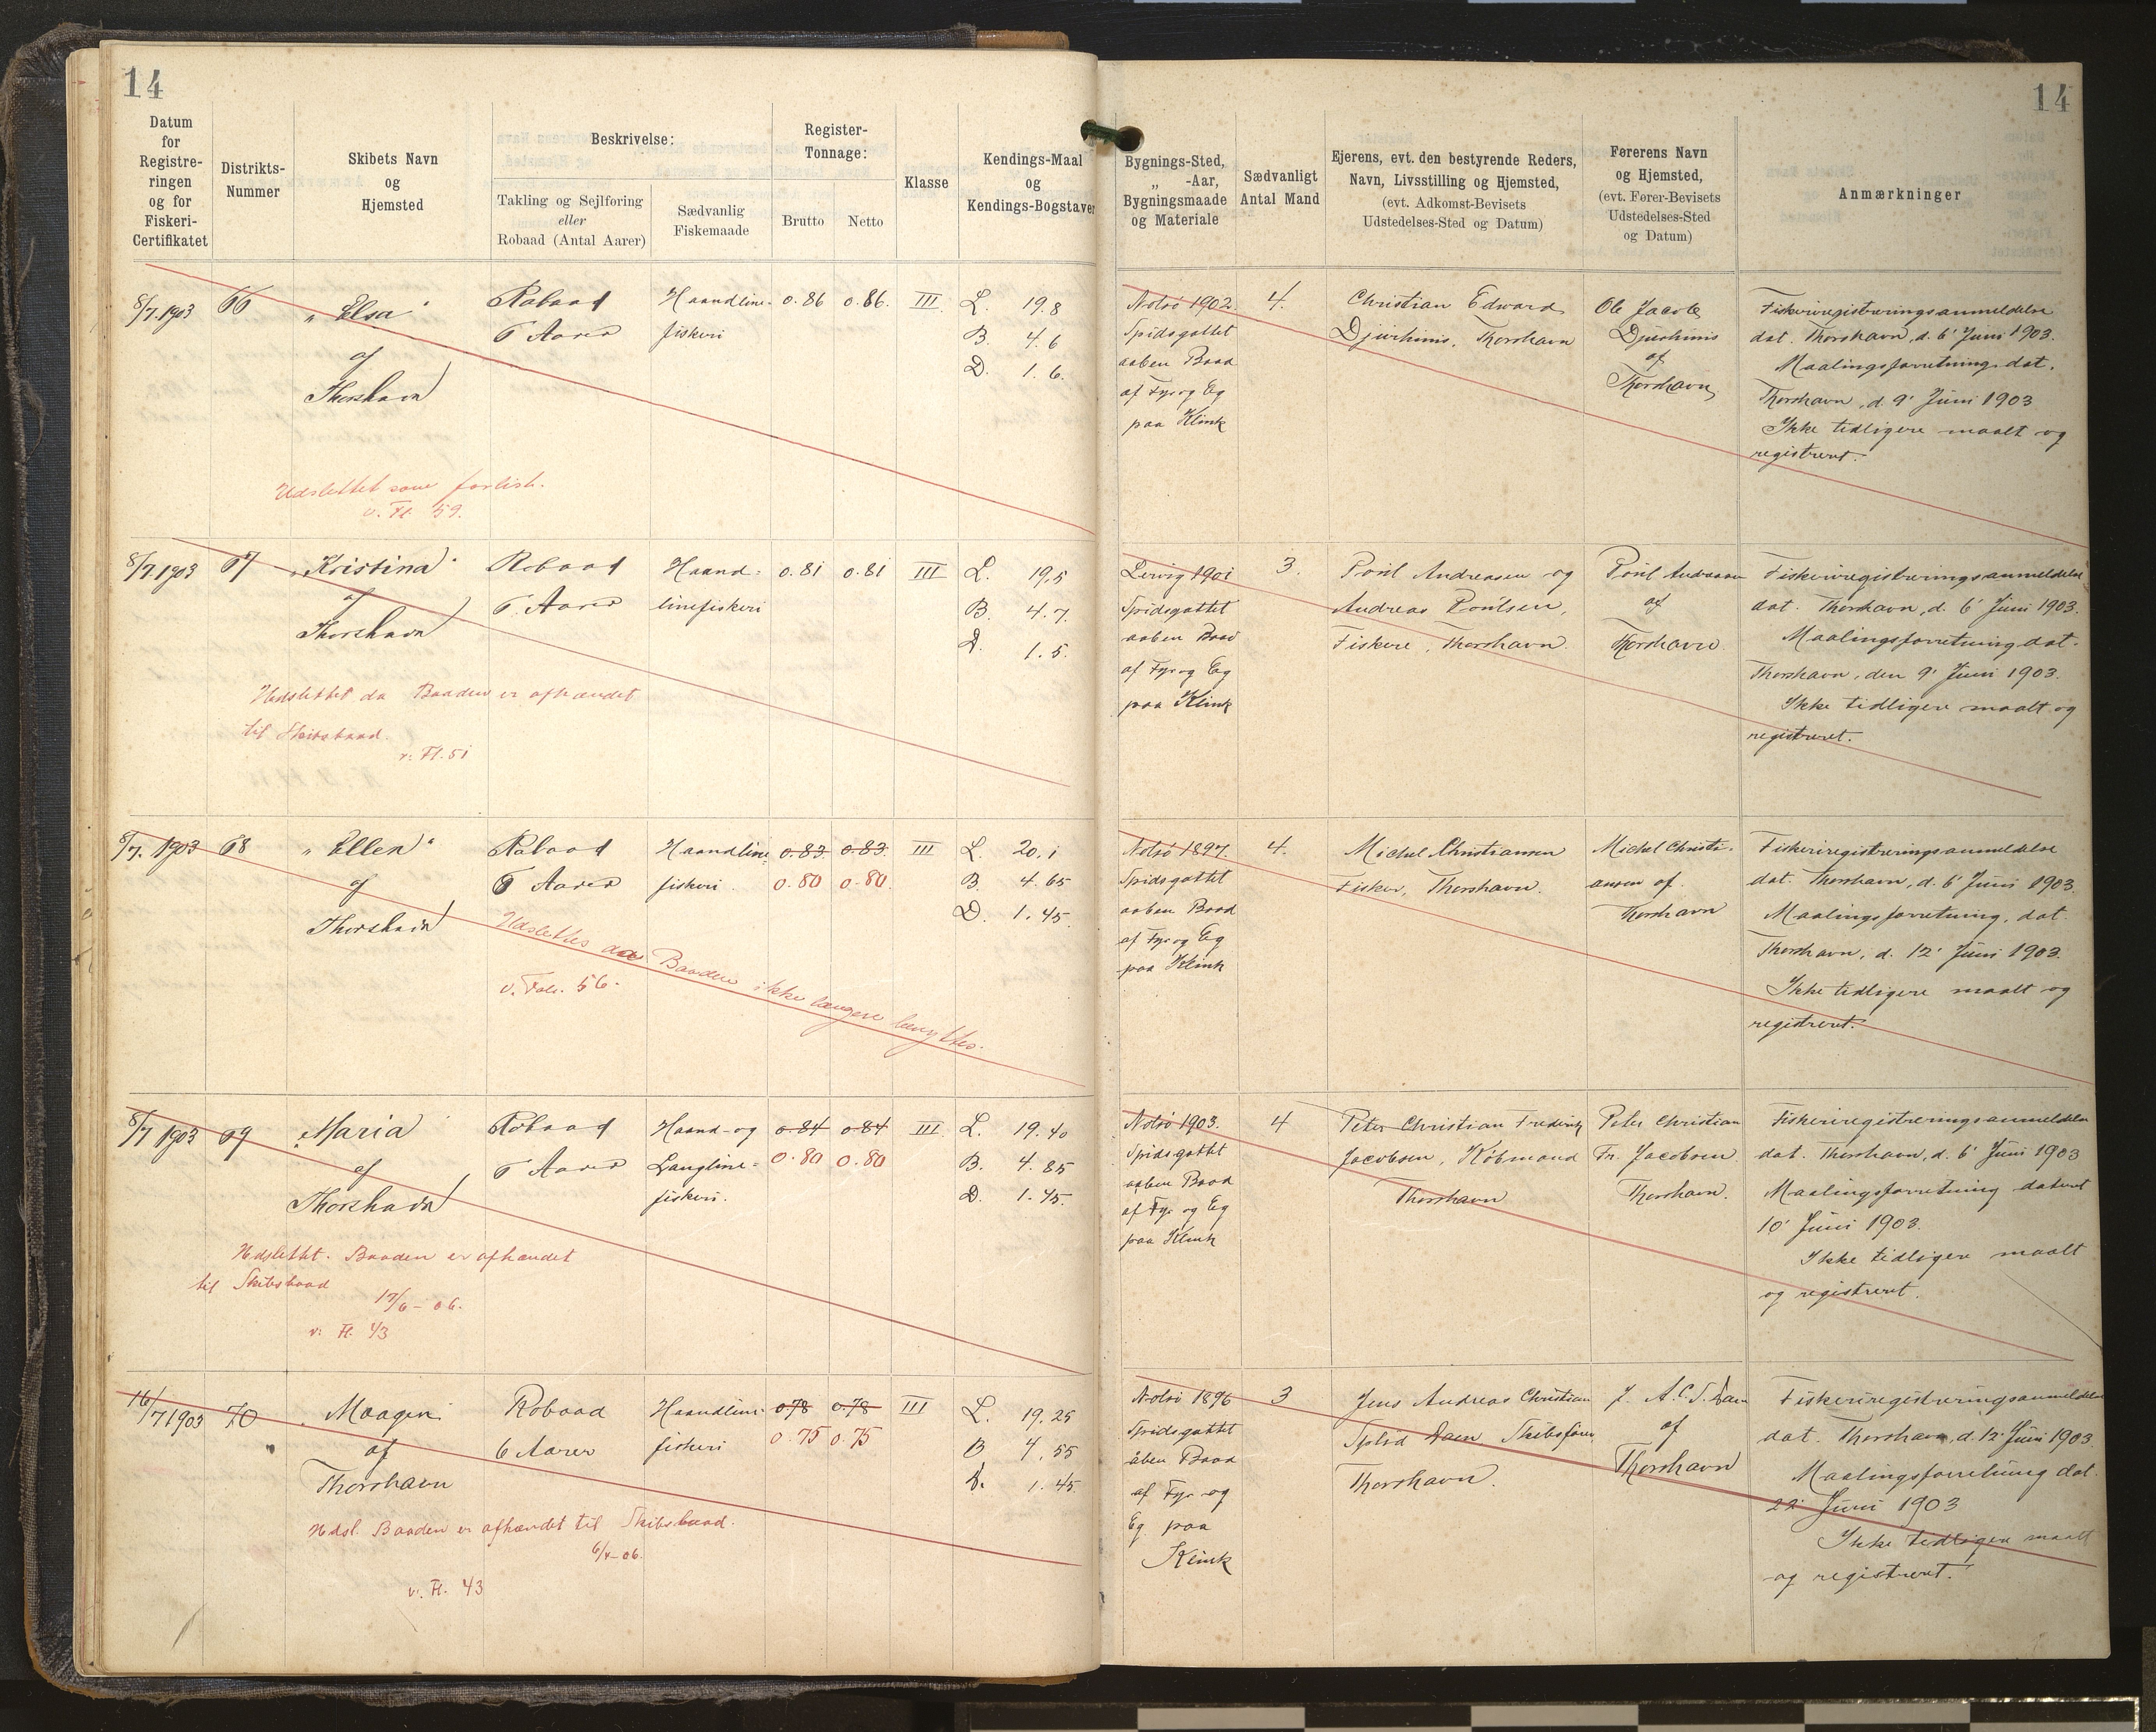 14
14
Datum for Registreringen og for Fiskeri-Certifikatet
Distrikts-Nummer
Skibets Navn og Hjemsted
Beskrivelse:
Takling og Sejlføring eller Robaad (Antal Aarer)
Sædvanlig Fiskemaade
Register-Tonnage:
Brutto
Netto
Klasse
Kendings-Maal og Kendings-Bogstaver
Bygnings-Sted, „ -Aar, Bygningsmaade og Materiale
Sædvanligt Antal Mand
Ejerens, evt. den bestyrende Reders, Navn, Livsstilling og Hjemsted, (evt. Adkomst-Bevisets Udstedelses-Sted og Datum)
Førerens Navn og Hjemsted, (evt. Fører-Bevisets Udstedelses-Sted og Datum)
Anmærkninger
8/7.1903 66 „Elsa“ Robaad Haandline- 0.86 0.86. III. L. 19.8
6 Aarer fiskeri B. 4.6
af D. 1.6.
Thorshavn
Udslettet som forlist.
v. Fl. 59.
Nolsö 1902. 4. Christian Edward Ole Jacob Fiskeriregistreringsanmeldelse
Spidsgattet Djurhuus, Thorshavn Djurhuus dat. Thorshavn, d. 6' Juni 1903.
aaben Baad af Maalingsforretning dat.
af Fyr og Eg Thorshavn Thorshavn, d. 9' Juni 1903
paa Klink Ikke tidligere maalt og
registreret.
8/7.1903 67 „Kristina“ Robaad Haand- 0.81 0.81 III L. 19,5
af 6 Aarer linefiskeri B. 4.7.
Thorshavn D. 1.5.
Udslettet da Baaden er afhændet
til Skibsbaad.
v. Fl. 51
Lervig 1901 3. Poul Andreasen og Poul Andreasen Fiskeriregistreringsanmeldelse
Spidsgattet Andreas Poulsen, af dat. Thorshavn, d. 6' Juni 1903.
aaben Baad Fiskere, Thorshavn. Thorshavn. Maalingsforretning dat.
af Fyr og Eg Thorshavn, den 9' Juni 1903.
paa Klink Ikke tidligere maalt og
registreret.
8/7. 1903 68 „Ellen“ Robaad Haandline- 0.83. 0.83. III L. 20.1
af 6 Aarer fiskeri. 0.80 0.80. B. 4.65
Thorshavn D. 1.45.
Udslettes da Baaden ikke længere benyttes.
v. Fol. 56.
Nolsö 1897. 4. Michel Christiansen Michel Christi- Fiskeriregistreringsanmeldelse
Spidsgattet Fisker, Thorshavn. ansen af dat. Thorshavn, d. 6' Juni 1903.
aaben Baad Thorshavn Maalingsforretning, dat.
af Fyr og Eg Thorshavn, d. 12' Juni 1903.
paa Klink Ikke tidligere maalt og
registreret.
8/7 1903 69 „Maria“ Robaad Haand- og 0.84 0.84 III. L. 19.40
af 6 Aarer Langline- 0.80 0.80 B. 4.85
Thorshavn fiskeri. D. 1.45.
Udslettet. Baaden er afhændet
til Skibsbaad
17/6-06.
v: Fl. 43
Nolsö 1903. 4 Peter Christian Frederik Peter Christian Fiskeriregistreringsanmeldelse
Spidsgattet Jacobsen, Købmand Fr. Jacobsen dat. Thorshavn, d. 6' Juni 1903
aaben Baad Thorshavn Thorshavn. Maalingsforretning dateret
af Fyr og Eg 10' Juni 1903.
paa Klink Ikke tidligere maalt
og registreret.
16/7 1903 70 „Maagen“ Robaad Haandline- 0.78 0.78 III L. 19.25
af 6 Aarer fiskeri 0.75 0.75 B 4.55
Thorshavn D. 1.45
Udsl. Baaden er afhændet til Skibsbaad.
6/4-06.
v. Fl. 43
Nolsö 1896 3 Jens Andreas Christian J. A. C. S. Dam Fiskeriregistreringsanmeldelse
Spidsgattet Dam Skibsfører af dat. Thorshavn, d. 12' Juni 1903.
åben Baad Thorshavn. Thorshavn Maalingsforretning dat.
af Fyr og 22' Juni 1903
Eg paa Ikke tidligere maalt
Klink og registreret.